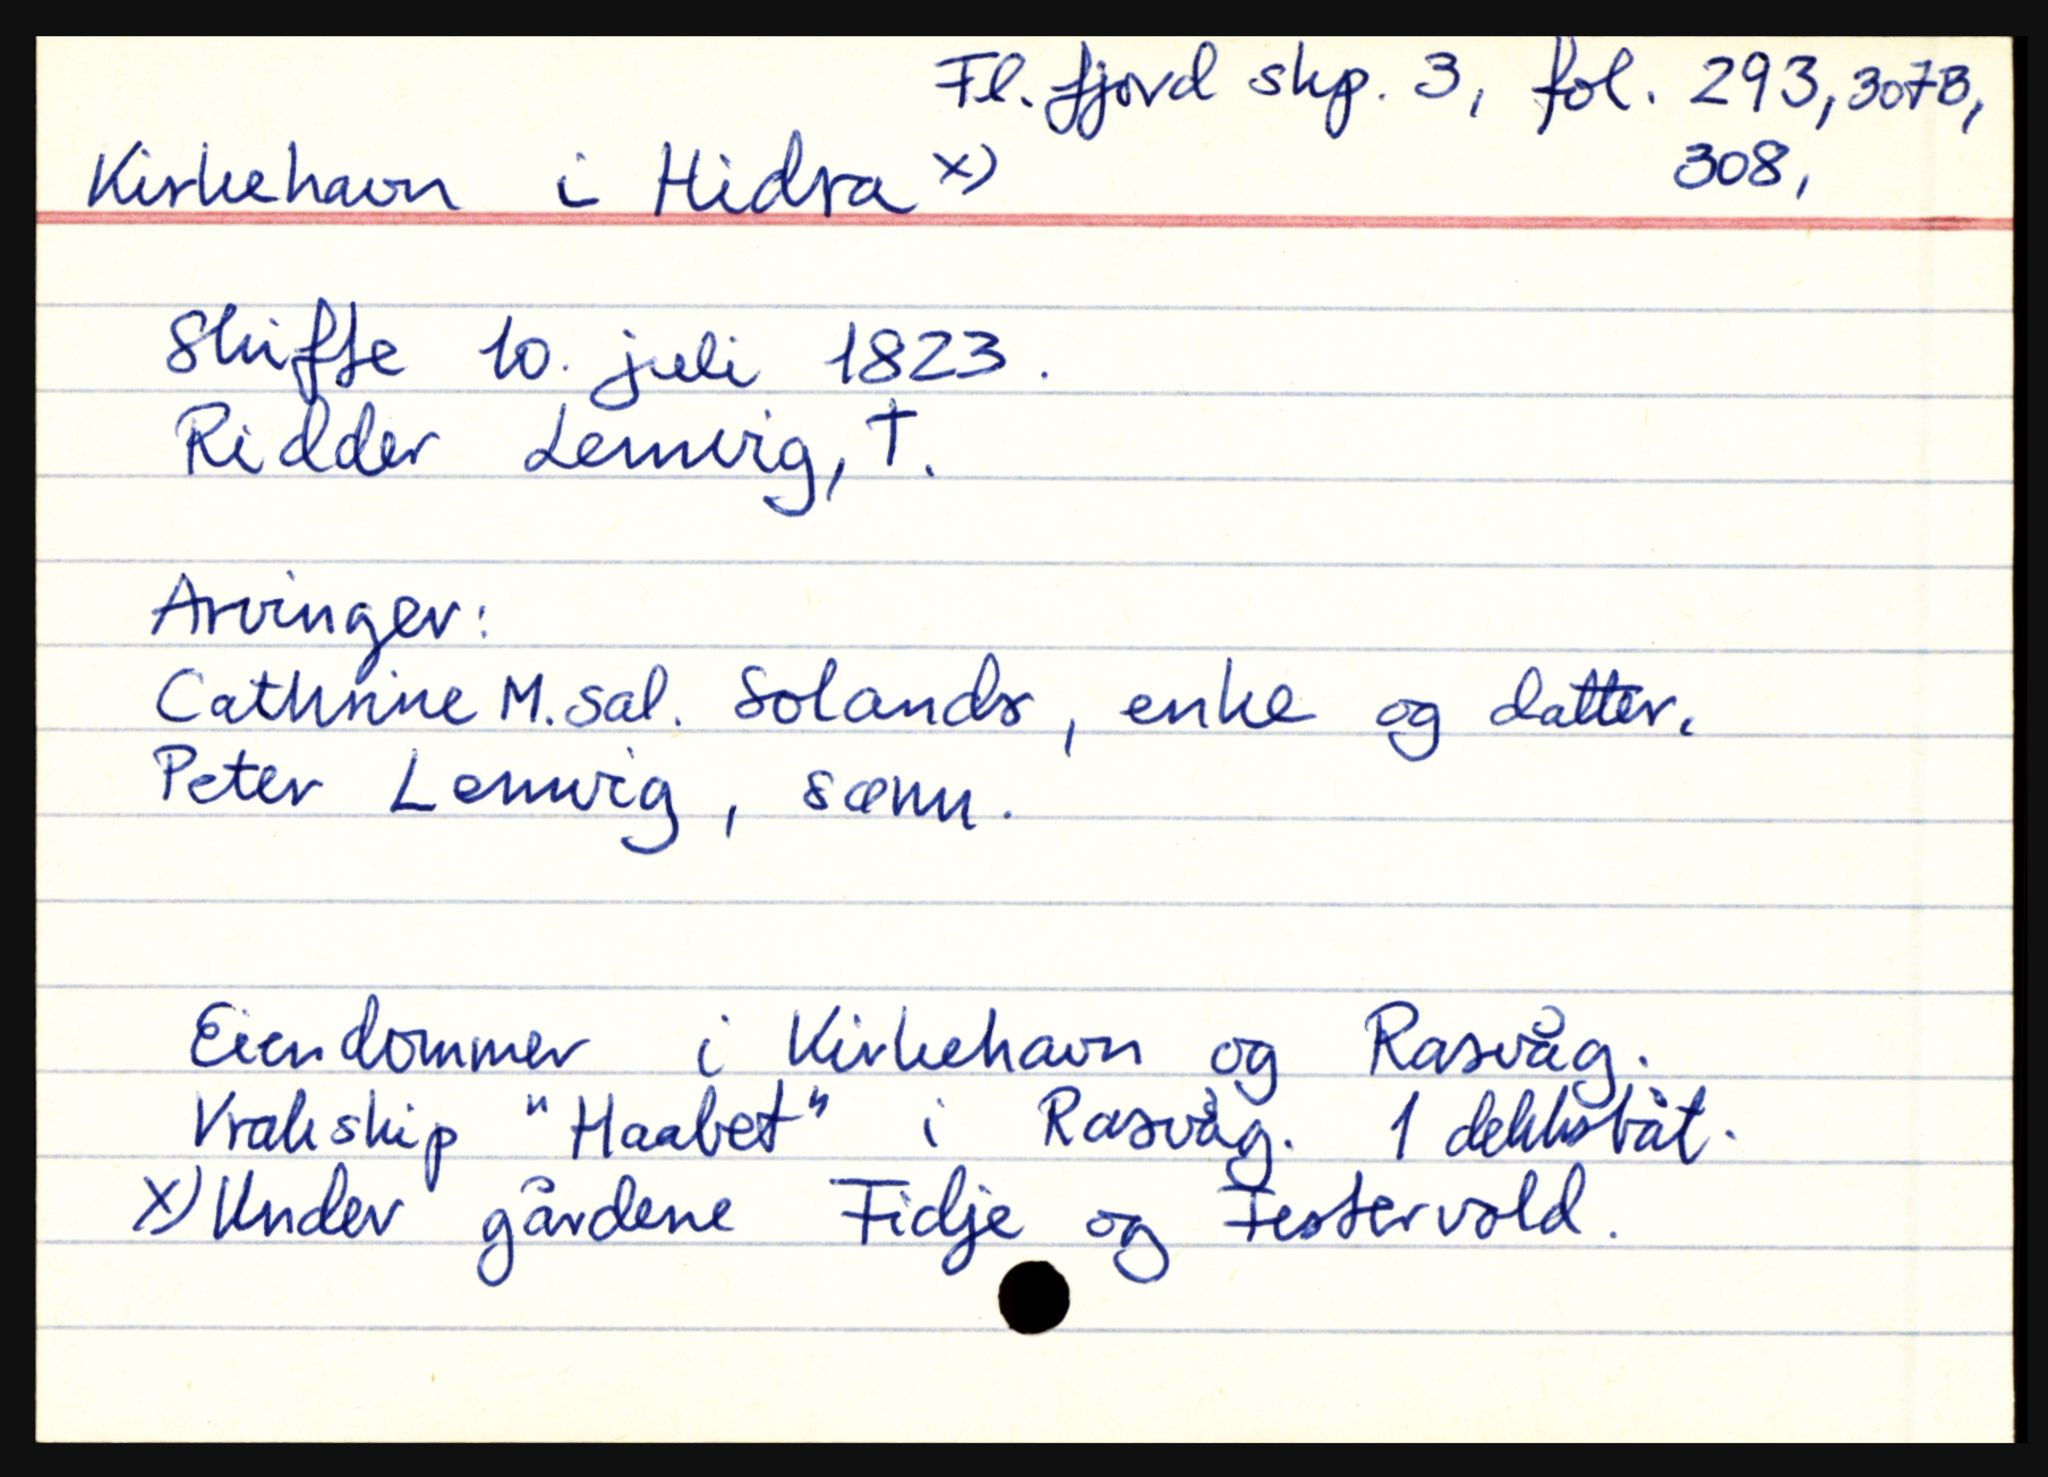 Fl.fjord skp. 3, fol. 293, 307B,
308,
Kirkehavn i Hidra x)
Skifte 10. juli 1823.
Ridder Lemvig, †.
Arvinger:
Cathrine M. sal. Solands, enke og datter.
Peter Lemvig, sønn.
Eiendommer i Kirkehavn og Rasvåg.
Vrakskip "Haabet" i Rasvåg. 1 dekksbåt.
x) Under gårdene Fidje og Festervold.